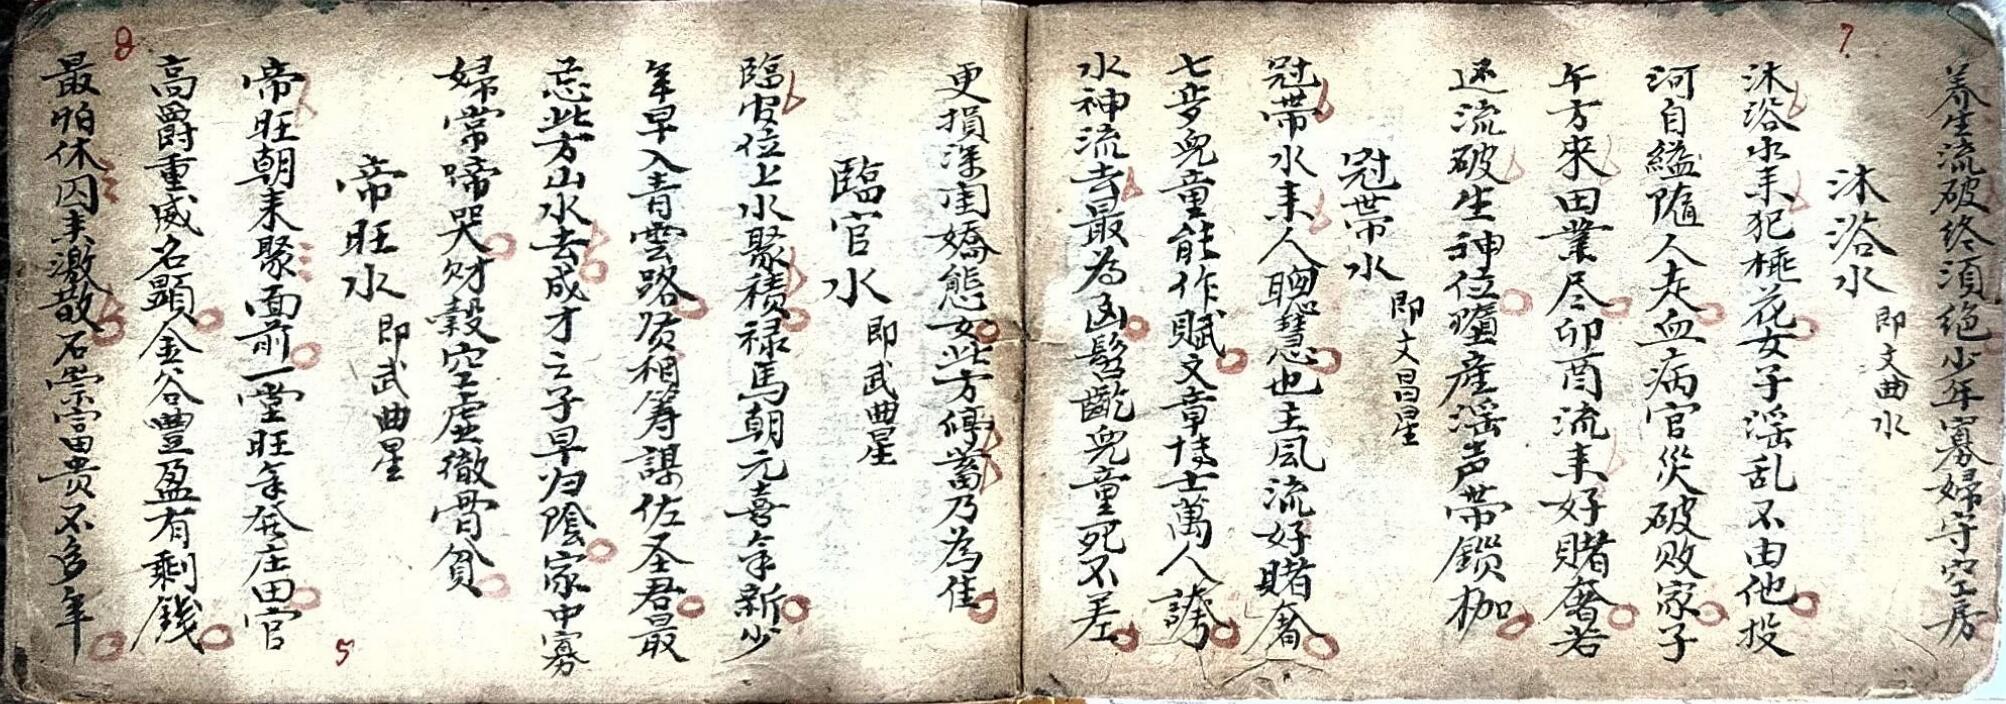 7
养生流破终須絶少年寡婦守空房
沐浴水 即文曲水
沐浴水来犯桃花女子滛乱不由他投
河自縊隨人走血病官災破敗家子
午方來田業尽卯酉流来好賭奢若
还流破生神位墮產滛声帶鎖枷
冠带水 即文昌星
冠帶水来人聰慧也主風流好賭奢
七步児童能作賦文章博士萬人誇
水神流去最為凶髫齔児童死不差
更損深闺嬌態女此方停蓄乃為佳
臨官水 即武曲星
臨官位上水聚積禄馬朝元喜年新少
年早入青雲路贤相籌謀佐圣君最
忌此方山水去成才之子早归陰家中寡
婦常啼哭财穀空虚徹骨貧
帝旺水 即武曲星
帝旺朝来聚面前一堂旺年發庄田官
高爵重威名顕金谷豊盈有剩錢
最怕休囚来激散石崇富贵不多年
8
5